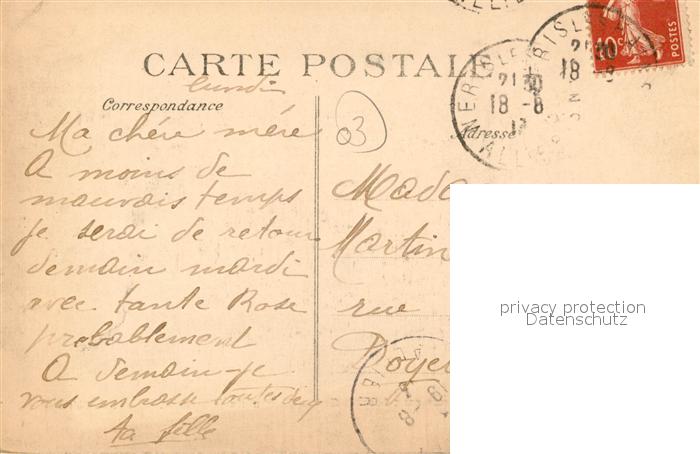 CARTE POSTALE
lundi
Correspondance
Ma chére mére
A moins de
mauvais temps
je serai de retour
demain mardi
avec tante Rose
probablement
A demain je
vous embrasse toutes deux
ta fille
03
Adresse
Mada
Martin
rue
Doye
NERIS LES
21 30
18 - 8
ALLIER
10c
POSTES
privacy protection
Datenschutz